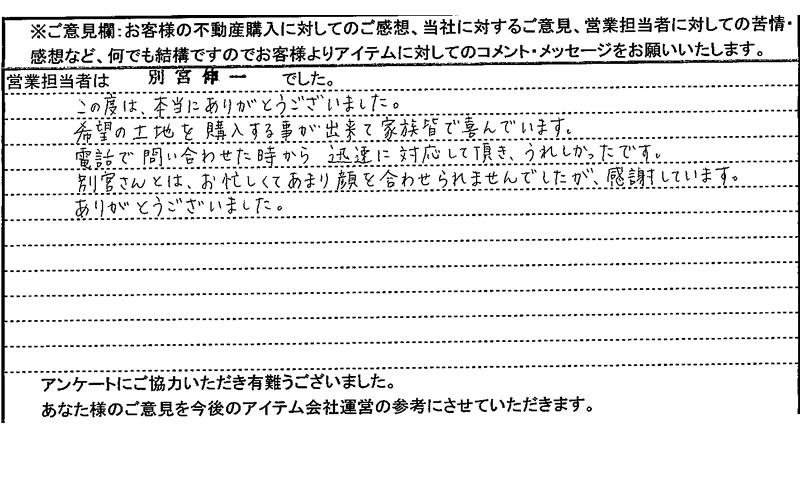 ※ご意見欄：お客様の不動産購入に対してのご感想、当社に対するご意見、営業担当者に対しての苦情・
感想など、何でも結構ですのでお客様よりアイテムに対してのコメント・メッセージをお願いいたします。
営業担当者は 別宮伸一 でした。
この度は、本当にありがとうございました。
希望の土地を購入する事が出来て家族皆で喜んでいます。
電話で問い合わせた時から 迅速に対応して頂き、うれしかったです。
別宮さんとは、お忙しくてあまり顔を合わせられませんでしたが、感謝しています。
ありがとうございました。
アンケートにご協力いただき有難うございました。
あなた様のご意見を今後のアイテム会社運営の参考にさせていただきます。